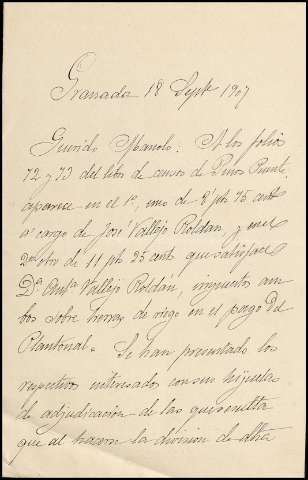 Granada 18 Sept 1907
Querido Manolo: A los folios
72 y 73 del libro de censos de Pinos Puente,
aparece en el 1º, uno de 8 pts 75 cents
a cargo de José Vallejo Roldan, y en el
2º otro de 11 pts 25 cents que satisface
Dª Antª Vallejo Roldán, impuestos am
bos sobre tierras de riego en el pago del
Plantonal. Se han presentado los
respectivos interesados con sus hijuelas
de adjudicación de las que resulta
que al hacerse la división de otra